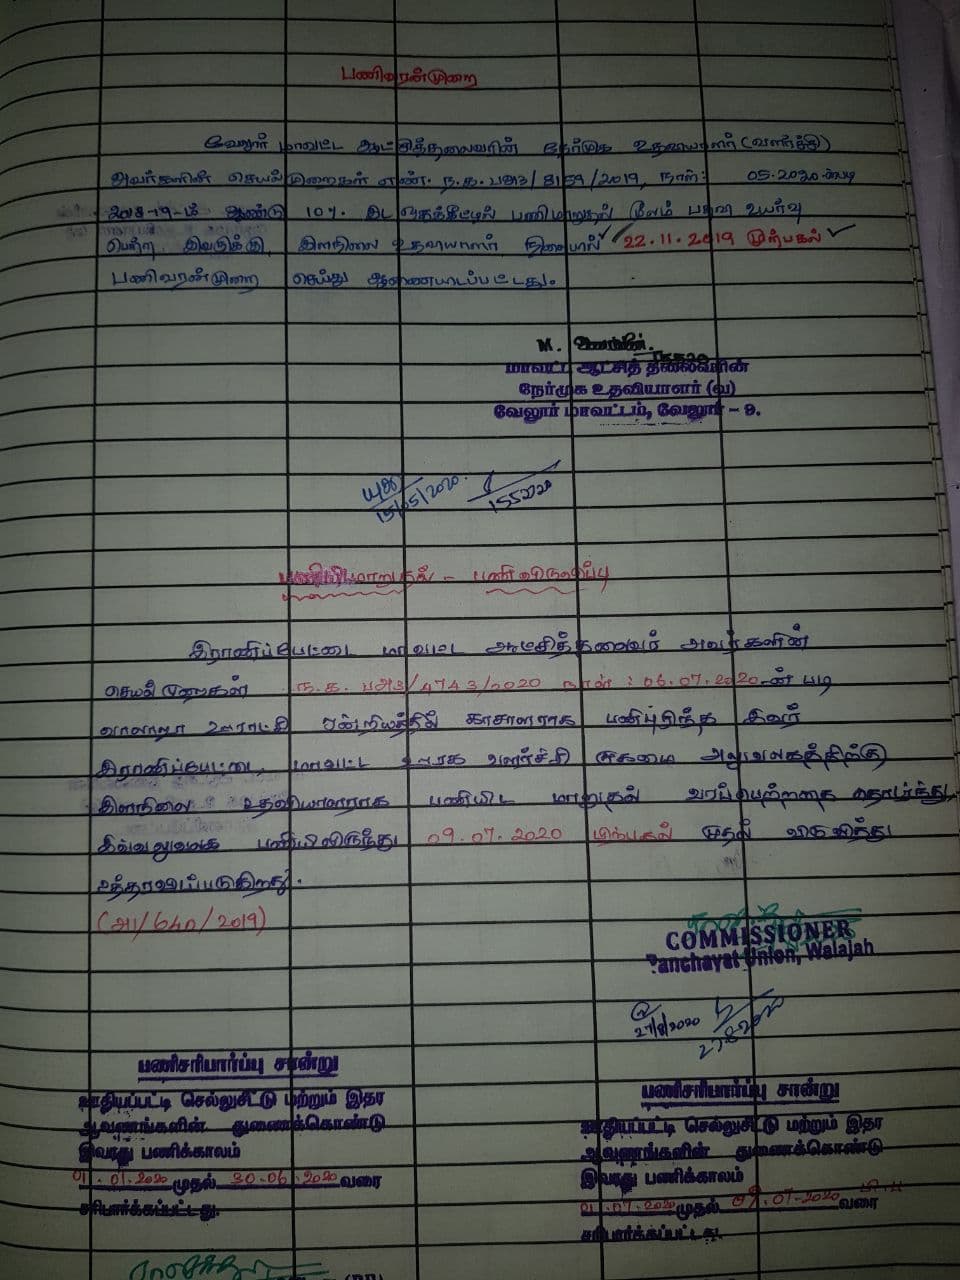 பணிவரன்முறை
வேலூர் மாவட்ட ஆட்சித்தலைவரின் நேர்முக உதவியாளர் (வளர்ச்சி)
அவர்களின் செயல்முறைகள் எண். ந.க. பஅ3/8159/2019, நாள்: 05.2020-ன்படி
2018-19-ம் ஆண்டு 10% இட ஒதுக்கீட்டில் பணிமாறுதல் மூலம் பதவி உயர்வு
பெற்ற இவருக்கு இளநிலை உதவியாளர் நிலையில் 22.11.2019 முற்பகல்
பணிவரன்முறை செய்து ஆணையிடப்பட்டது.
M.
மாவட்ட ஆட்சித் தலைவரின்
நேர்முக உதவியாளர் (வ)
வேலூர் மாவட்டம், வேலூர் - 9.
15/05/2020 1552020
பணியிடமாறுதல் - பணிவிடுவிப்பு
இராணிப்பேட்டை மாவட்ட ஆட்சித்தலைவர் அவர்களின்
செயல்முறைகள் ந.க. பஅ3/4743/2020 நாள் : 06.07.2020-ன் படி
வாலாஜா ஊராட்சி ஒன்றியத்தில் காசாளராக பணிபுரிந்த இவர்
இராணிப்பேட்டை மாவட்ட ஊரக வளர்ச்சி முகமை அலுவலகத்திற்கு
இளநிலை உதவியாளராக பணியிட மாறுதல் வரப்பெற்றதை தொடர்ந்து
இவ்வலுவலக பணியிலிருந்து 09.07.2020 பிற்பகல் முதல் விடுவித்து
உத்தரவிடப்படுகிறது.
(அ1/640/2019)
COMMISSIONER
Panchayat Union, Walajah
27/8/2020 27.8.2020
பணிசரிபார்ப்பு சான்று
ஊதியப்பட்டி செல்லுசீட்டு மற்றும் இதர
ஆவணங்களின் துணைக்கொண்டு
இவரது பணிக்காலம்
01.01.2020 முதல் 30-06-2020 வரை
சரிபார்க்கப்பட்டது.
பணிசரிபார்ப்பு சான்று
ஊதியப்பட்டி செல்லுசீட்டு மற்றும் இதர
ஆவணங்களின் துணைக்கொண்டு
இவரது பணிக்காலம்
01.07.2020 முதல் 09.07-2020 வரை
சரிபார்க்கப்பட்டது.